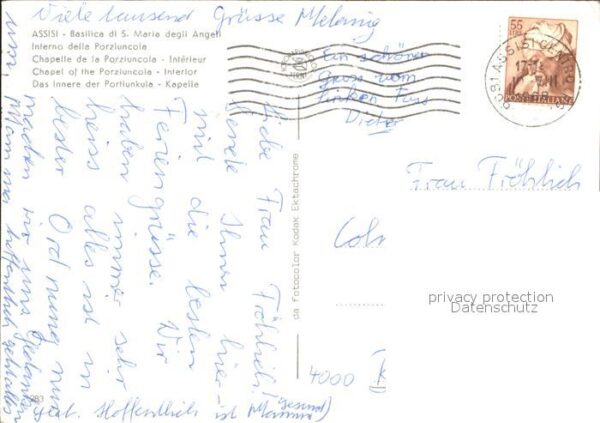 Viele tausend Grüsse Melanig
ASSISI - Basilica di S. Maria degli Angeli
Interno della Porziuncola
Chapelle de la Porziuncola - Intérieur
Chapel of the Porziuncola - Interior
Das Innere der Portiunkula - Kapelle
Ein schöner
Gruss vom
linken Fuss
Dieter
55
06081 ASSISI CENTRO
POSTE ITALIANE
Liebe Frau Fröhlich!
sende Ihnen hier
mit die besten
Feriengrüsse. Wir
haben immer sehr
heiss alles ist in
bester Ordnung nur
machen wir uns Gedanken
um Mamma hoffentlich geht alles
gut. Hoffentlich ist Mamma
gesund
da Fotocolor Kodak Ektachrome
Frau Fröhlich
Col
4000
283
privacy protection
Datenschutz